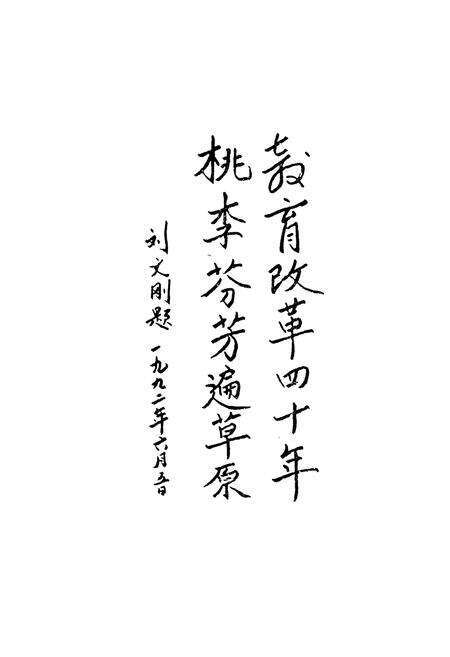 教育改革四十年
桃李芬芳遍草原
刘文刚题 一九九二年六月五日